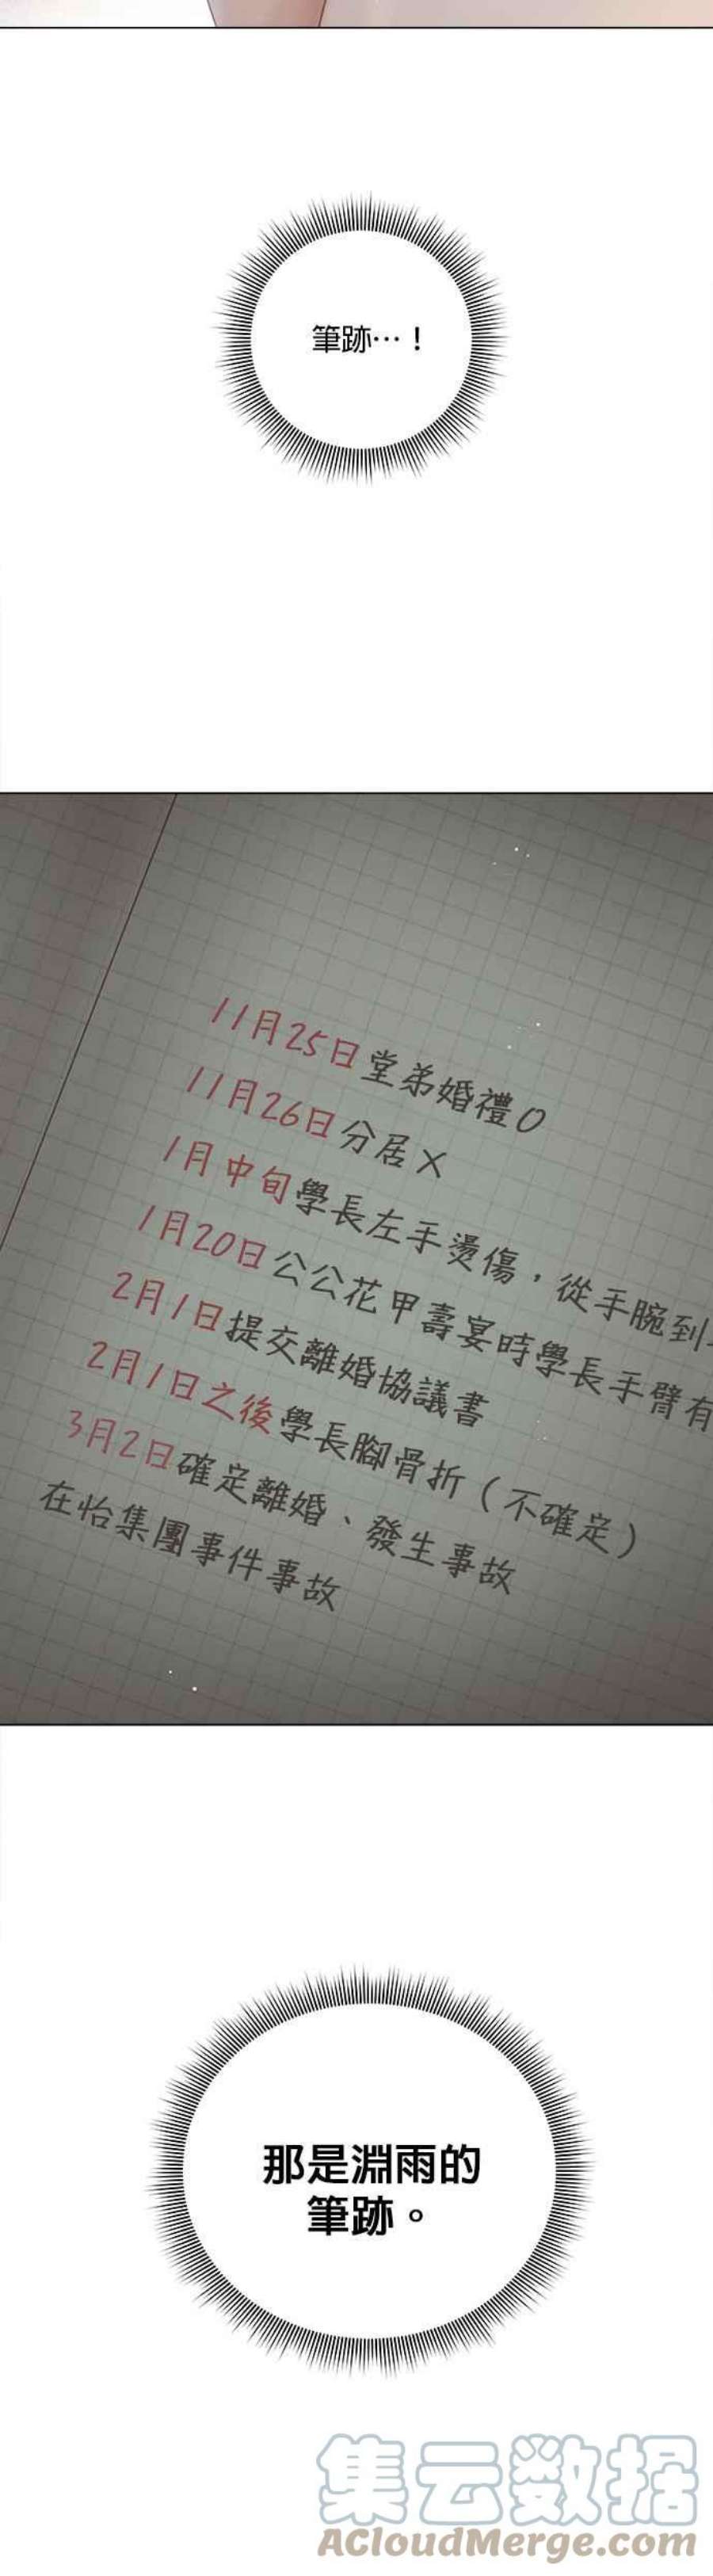 筆跡…！
11月25日堂弟婚禮O
11月26日分居X
1月中旬學長左手燙傷，從手腕到
1月20日公公花甲壽宴時學長手臂有
2月1日提交離婚協議書
2月1日之後學長腳骨折（不確定）
3月2日確定離婚、發生事故
在怡集團事件事故
那是淵雨的
筆跡。
集云数据
ACloudMerge.com